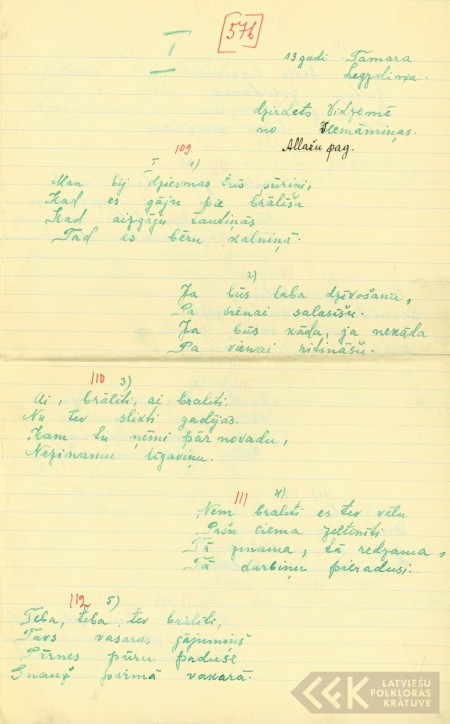 576
I
13 gadi Tamara
Legzdiņa.
dzirdets Vidzemē
no
Allažu pag.
109
I 1)
Man bij dziesmas trīs pūriņi,
Kad es gāju pie brālīša
Kad aizgāju tautiņās
Tad es bēru kalniņā.
2)
Ja būs laba dzīvošana,
Pa vienai salasīšu.
Ja būs kāda, ja nekāda
Pa vienai ritināšu.
110 3)
Ai, brālīti, ai bralīti.
Nu tev slikti gadijās.
Kam tu ņēmi pār novadu,
Nezinamu līgaviņu.
111 4)
Ņem bralīti es tev vēlu
Pašu ciema zeltenīti
Tā zinama, tā redzama,
Tā darbiņu pieradusi.
112 5)
Teba, teba, tev brālīti,
Tavs vasaras gājumiņš
Pārnes pūru padusē
pirmā vakarā.
LATVIEŠU
FOLKLORAS
KRĀTUVE